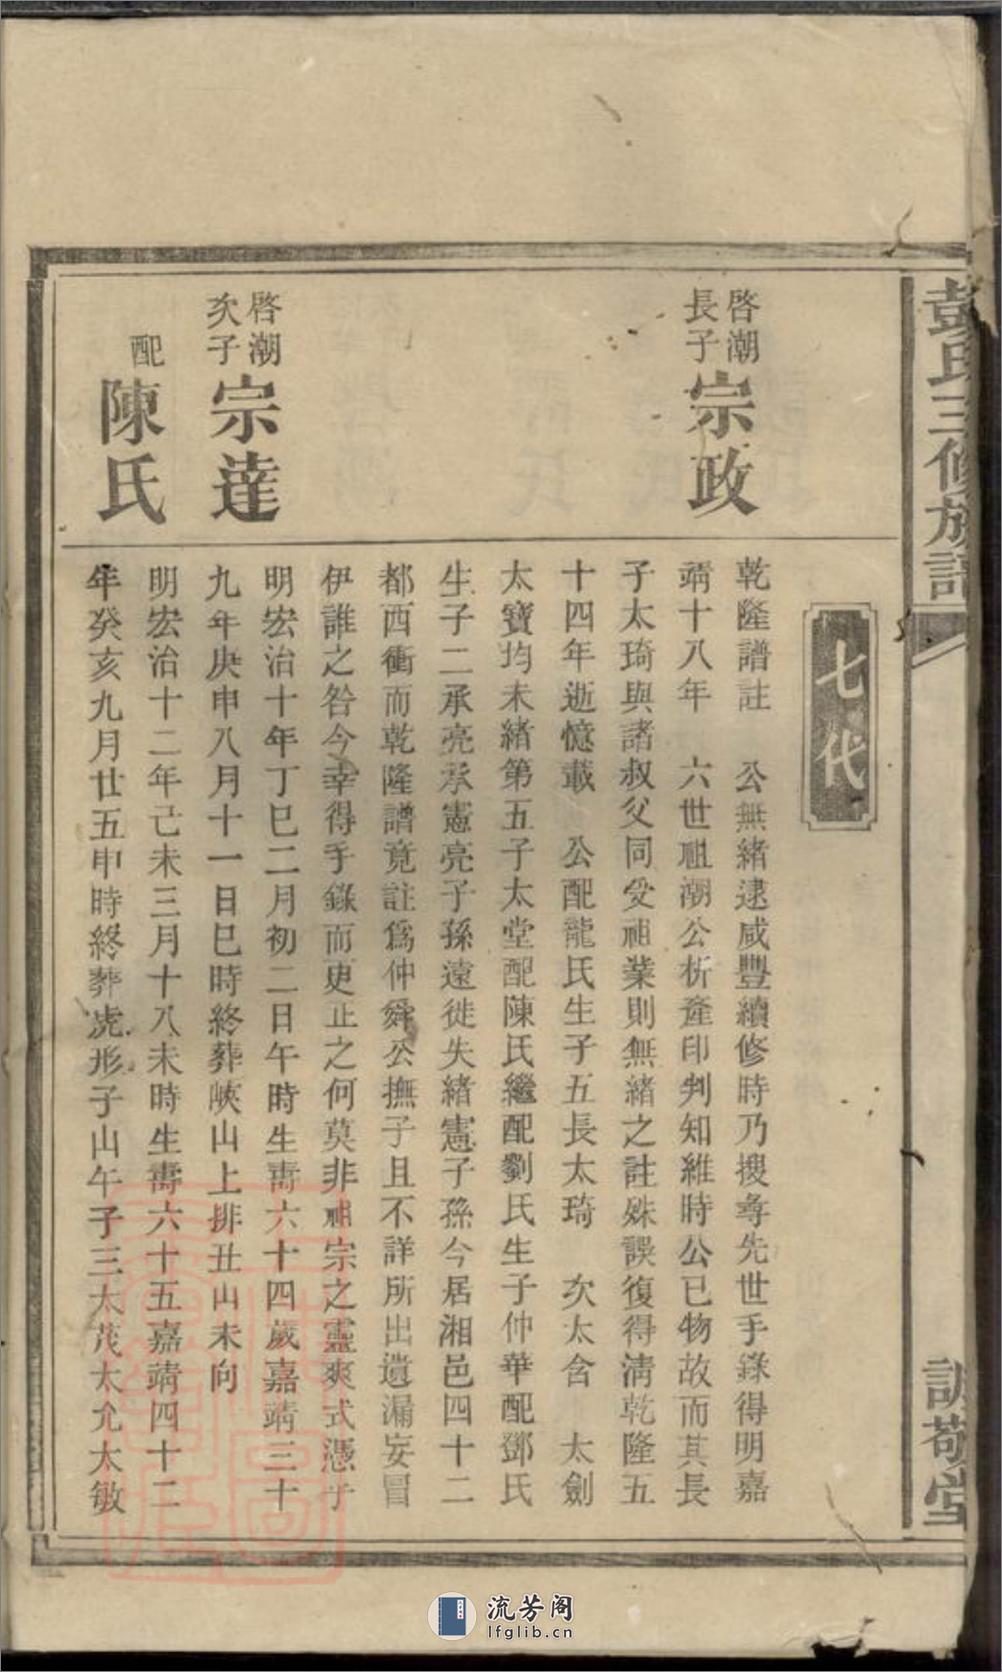 彭氏三修族譜
敬堂
七代
啓潮
長子
宗政
乾隆譜註 公無緒逮咸豐續修時乃搜尋先世手錄得明嘉
靖十八年 六世祖潮公析產印判知維時公已物故而其長
子太琦與諸叔父同受祖業則無緒之註殊誤復得清乾隆五
十四年逝憶載 公配龍氏生子五長太琦 次太含 太劍
太寶均未緒第五子太堂配陳氏繼配劉氏生子仲華配鄧氏
生子二承亮承憲亮子孫遠徙失緒憲子孫今居湘邑四十二
都西衝而乾隆譜竟註爲仲舜公撫子且不詳所出遺漏妄冒
伊誰之咎今幸得手錄而更正之何莫非祖宗之靈爽式憑乎
啓潮
次子
宗達
明宏治十年丁巳二月初二日午時生壽六十四歲嘉靖三十
九年庚申八月十一日巳時終葬峽山上排丑山未向
配
陳氏
明宏治十二年己未三月十八未時生壽六十五嘉靖四十二
年癸亥九月廿五申時終葬虎形子山午子三太茂太允太敏
流芳阁
lfglib.cn